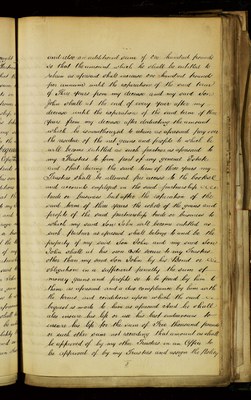 and also an additional sum of One hundred pounds
so that the amount which he shall be entitled to
retain as aforesaid shall increase One hundred pounds
per annum until the expiration of the said term
of Five years from my decease and my said Son
John shall at the end of every year after my
decease until the expiration of the said term of Five
years from my decease after deducting the amount
which he is authorized to retain as aforesaid pay over
the residue of the net gains and profits to which he
will become entitled as such partner as aforesaid to
my Trustees to form part of my general Estate
and that during the said term of Five years my
Trustees shall be allowed free access to the books
and accounts employed in the said partnership
trade or business but after the expiration of the
said term of Five years the whole of the gains and
profits of the said partnership trade or business to
which my said Son John will become entitled as
such Partner as aforesaid shall belong to and be the
property of my said Son John and my said Son
John shall at his own sole cause to my Trustees
other than my said Son John by his Bond or
obligation in a sufficient penalty the sum of
money gains and profits so to be paid by him to
them as aforesaid and a due compliance by him with
the terms and conditions upon which the said
bequest is made to him as aforesaid And he shall
also insure his life or use his best endeavours to
insure his life for the sum of Five thousand pounds
or such other sum not exceeding that amount as shall
be approved of by my other Trustees in an Office to
be approved of by my Trustees and assign the Policy